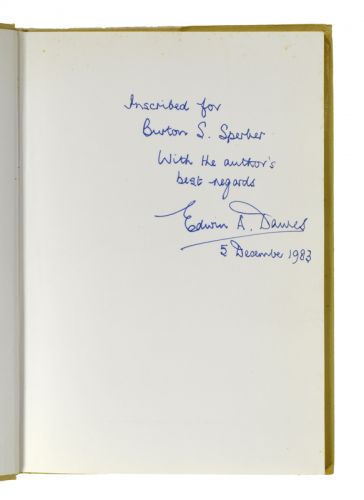 Inscribed for
Burton S. Sperber
With the author's
best regards
Edwin A. Dawes
5 December 1983